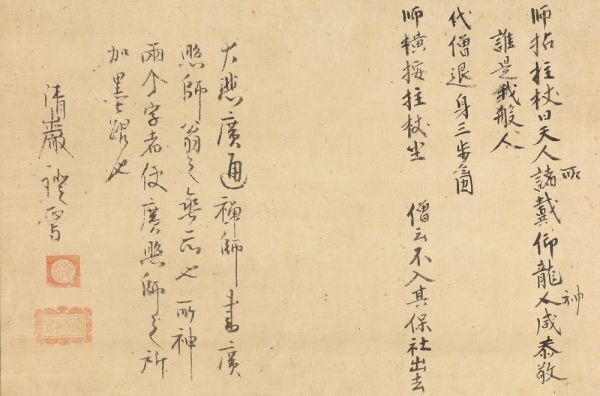 師拈拄杖曰天人諸戴仰龍人咸恭敬
所
神
誰是我般人
代僧退身三步
師横按拄杖坐 僧云不入其保社出去
大悲廣通禅師書廣
照師翁之無示也所神
兩个字者使廣照師之所
加墨蹤也
清巖證焉